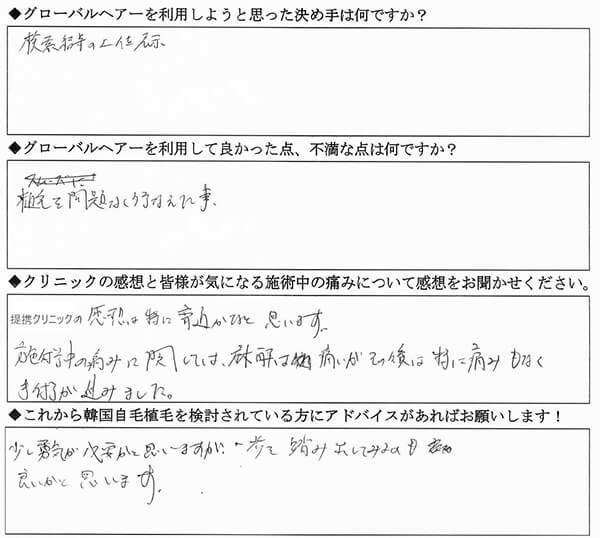 ◆グローバルヘアーを利用しようと思った決め手は何ですか？
検索結果の上位表示
◆グローバルヘアーを利用して良かった点、不満な点は何ですか？
植毛を問題なく行なえた事、
◆クリニックの感想と皆様が気になる施術中の痛みについて感想をお聞かせください。
提携クリニックの 感想は特に かなと思います。
施術中の痛みに関しては、麻酔は 痛いがその後は特に痛みもなく
手術が進みました。
◆これから韓国自毛植毛を検討されている方にアドバイスがあればお願いします！
少し勇気が必要かと思いますが、一歩を踏み出してみるのも
良いかと思います。